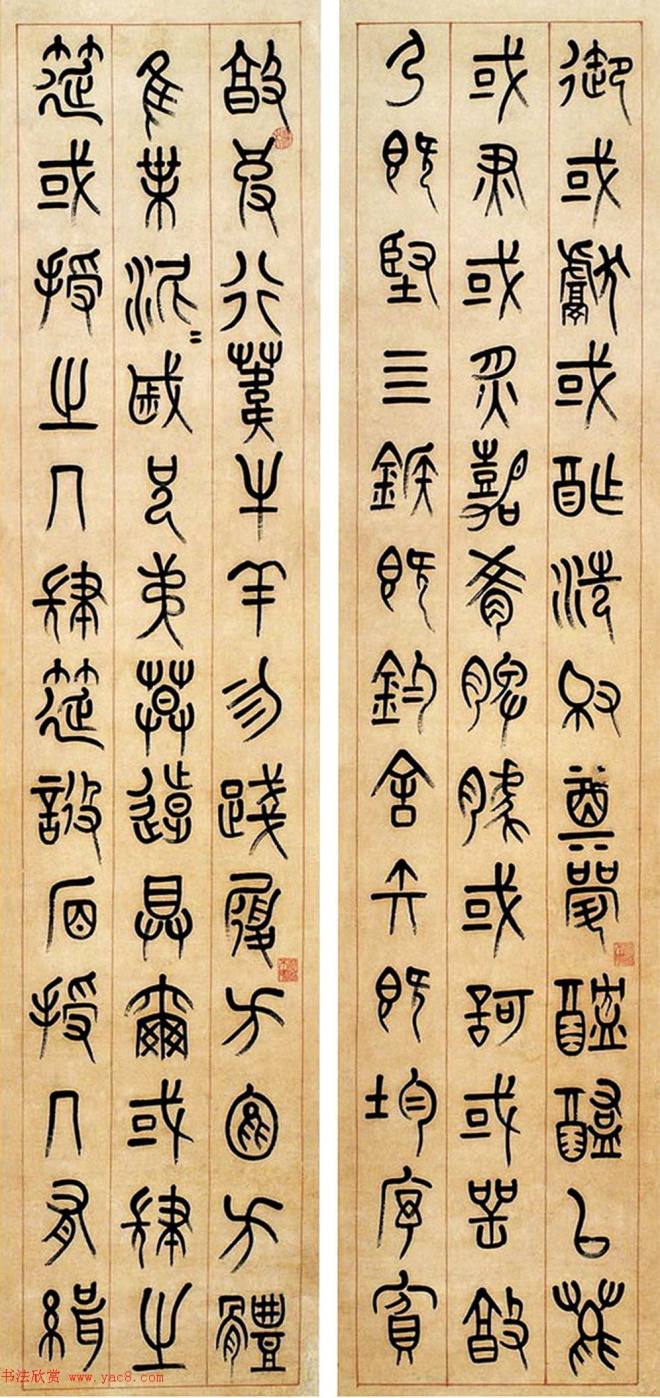 敦彼行葦牛羊勿踐履方苞方體
隹葉泥〻戚兄弟莫遠具爾或肆之
筵或授之几肆筵設席授几有緝
御或獻或酢洗爵奠斝醓醢以薦
或燔或炙嘉肴脾臄或訶或咢敦
弓既堅亖鍭既鈞舍矢既均序賓
书法欣赏 www.yac8.com